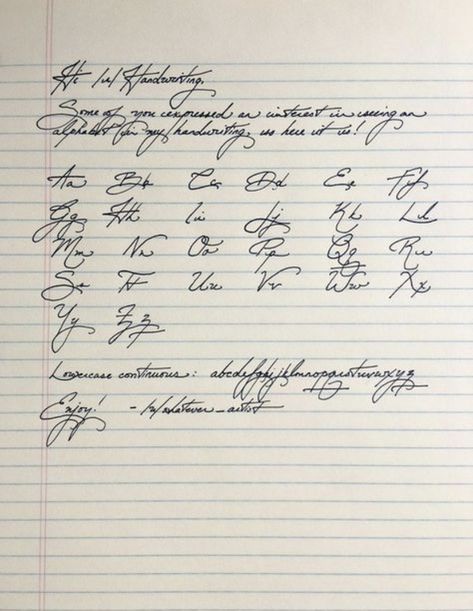 Hi /r/ Handwriting,
Some of you expressed an interest in seeing an
alphabet in my handwriting, so here it is!
Aa Bb Cc Dd Ee Ff
Gg Hh Ii Jj Kk Ll
Mm Nn Oo Pp Qq Rr
Ss Tt Uu Vv Ww Xx
Yy Zz
Lowercase continuous: abcdefghijklmnopqrstuvwxyz
Enjoy! - /u/whatever_artist